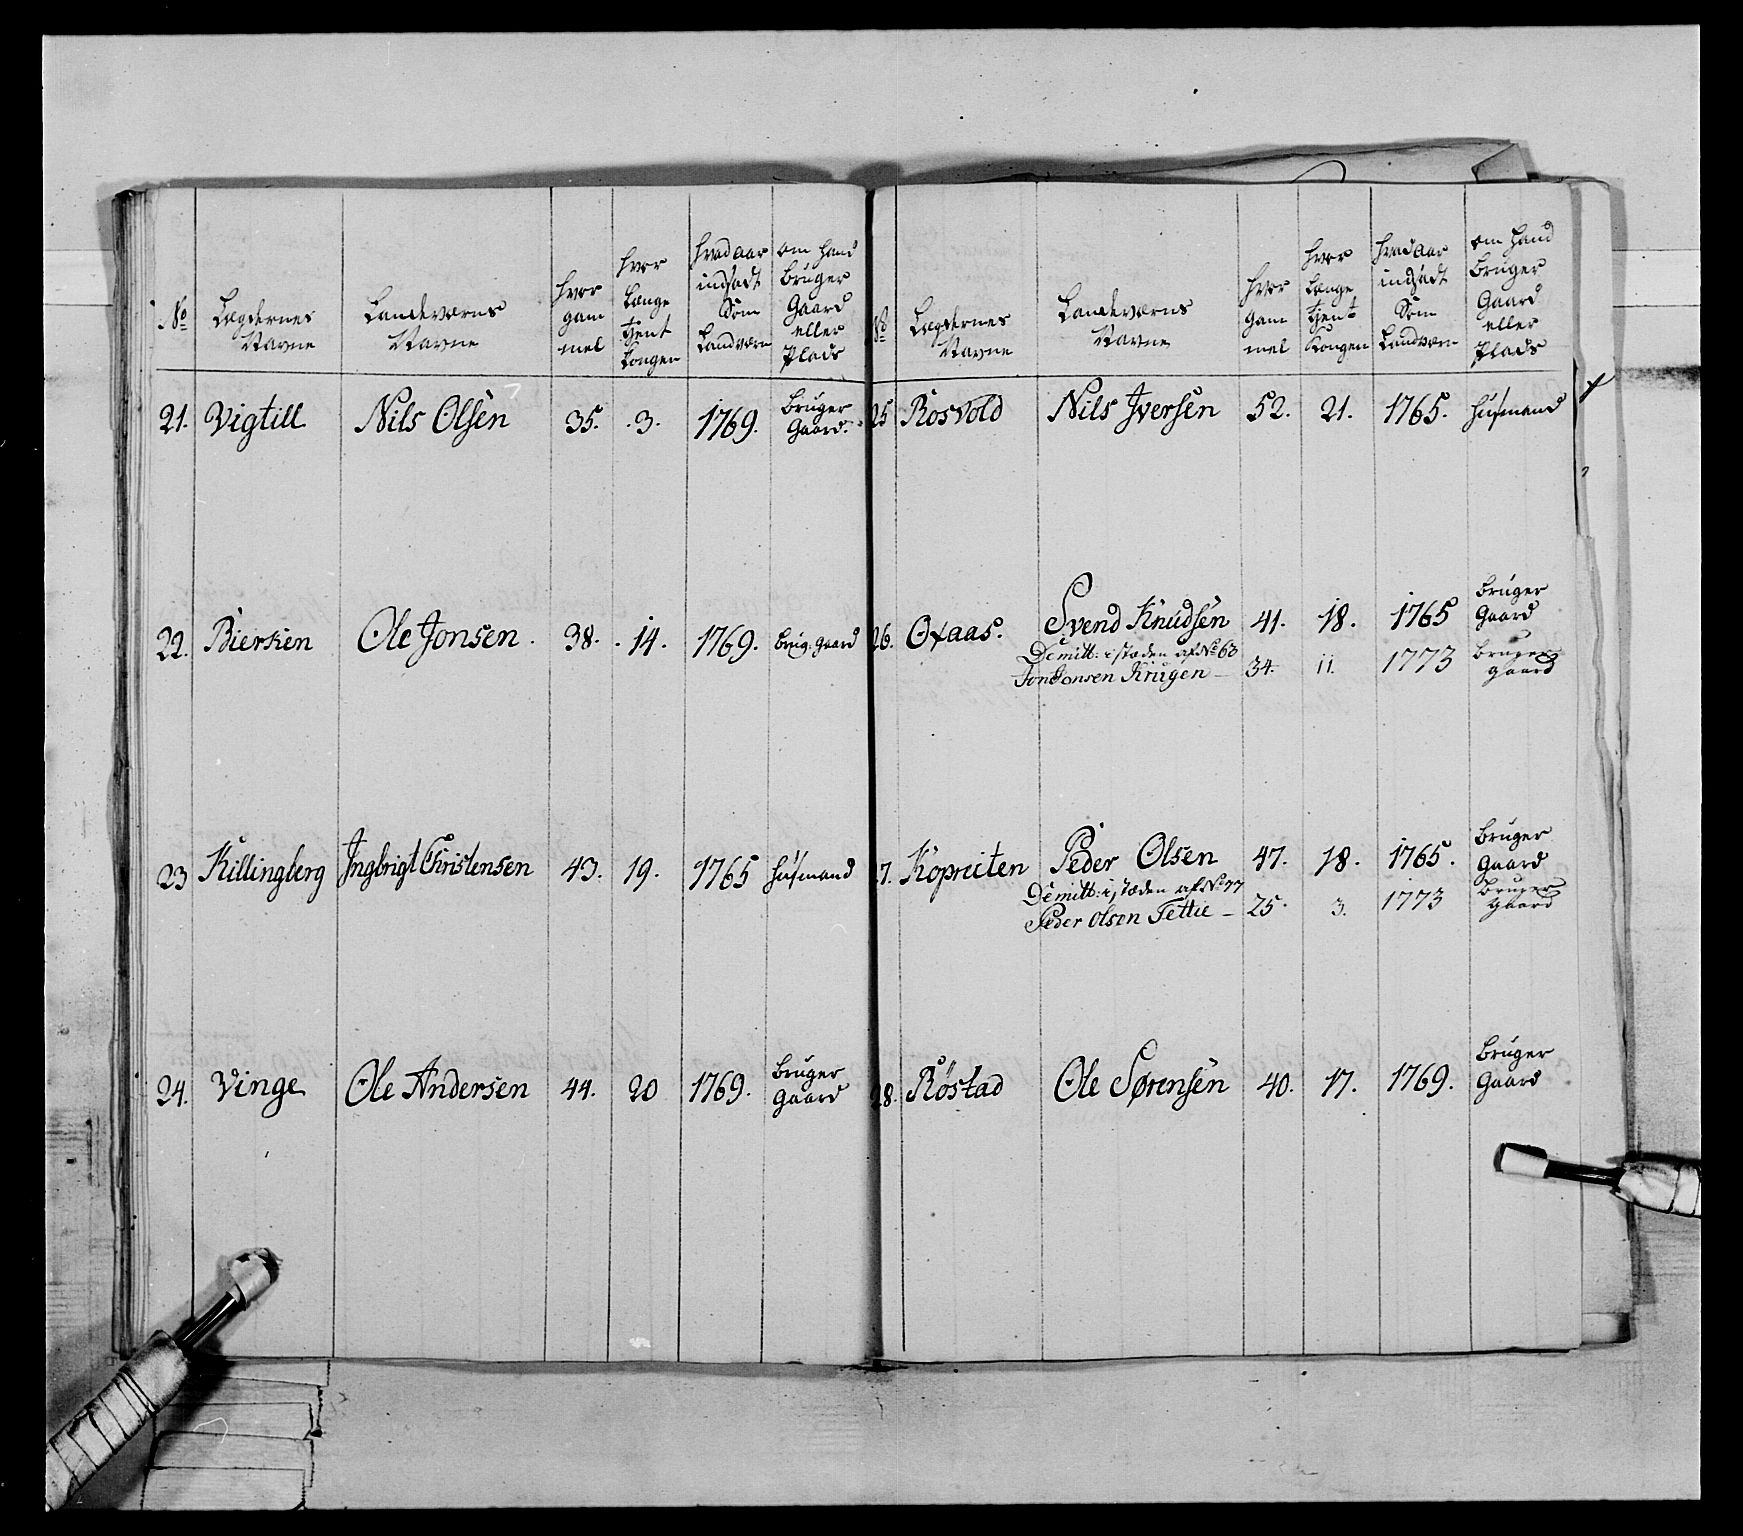 No
Lægdernes
Navne
Landeværns
Navne
hvor
gam
mel
hvor
Længe
tjent
Kongen
hvad aar
indsadt
Som
Landværn
om hand
bruger
Gaard
eller
Plads
21. Vigtill Nils Olsen 35. 3. 1769. bruger
Gaard.
22. Bierken Ole Jonsen. 38. 14. 1769. brug. gaard
23 Killingberg Ingbrigt Christensen 43. 19. 1765 huusmand
24. Vinge Ole Andersen 44. 20 1769. bruger
gaard
No
Lægdernes
Navne
Landeværns
Navne
hvor
Gam
mel
hvor
Længe
tjent
Kongen
hvad aar
indsadt
Som
Landværn
om hand
bruger
Gaard
eller
Plads
25 Rosvold Nils Iversen 52. 21. 1765. huusmand
26. Oxaas. Svend Knudsen 41. 18. 1765 bruger
Gaard
Demitt: i stæden af No 63
Jon Jonsen Krigen 34. 11. 1773 bruger
gaard
7. Peder Olsen 47. 18. 1765. bruger
Gaard
Demitt: i stæden af No 77
Peder Olsen Tettie 25. 3. 1773 bruger
gaard
28. Röstad Ole Sørensen 40. 17. 1769. bruger
Gaard